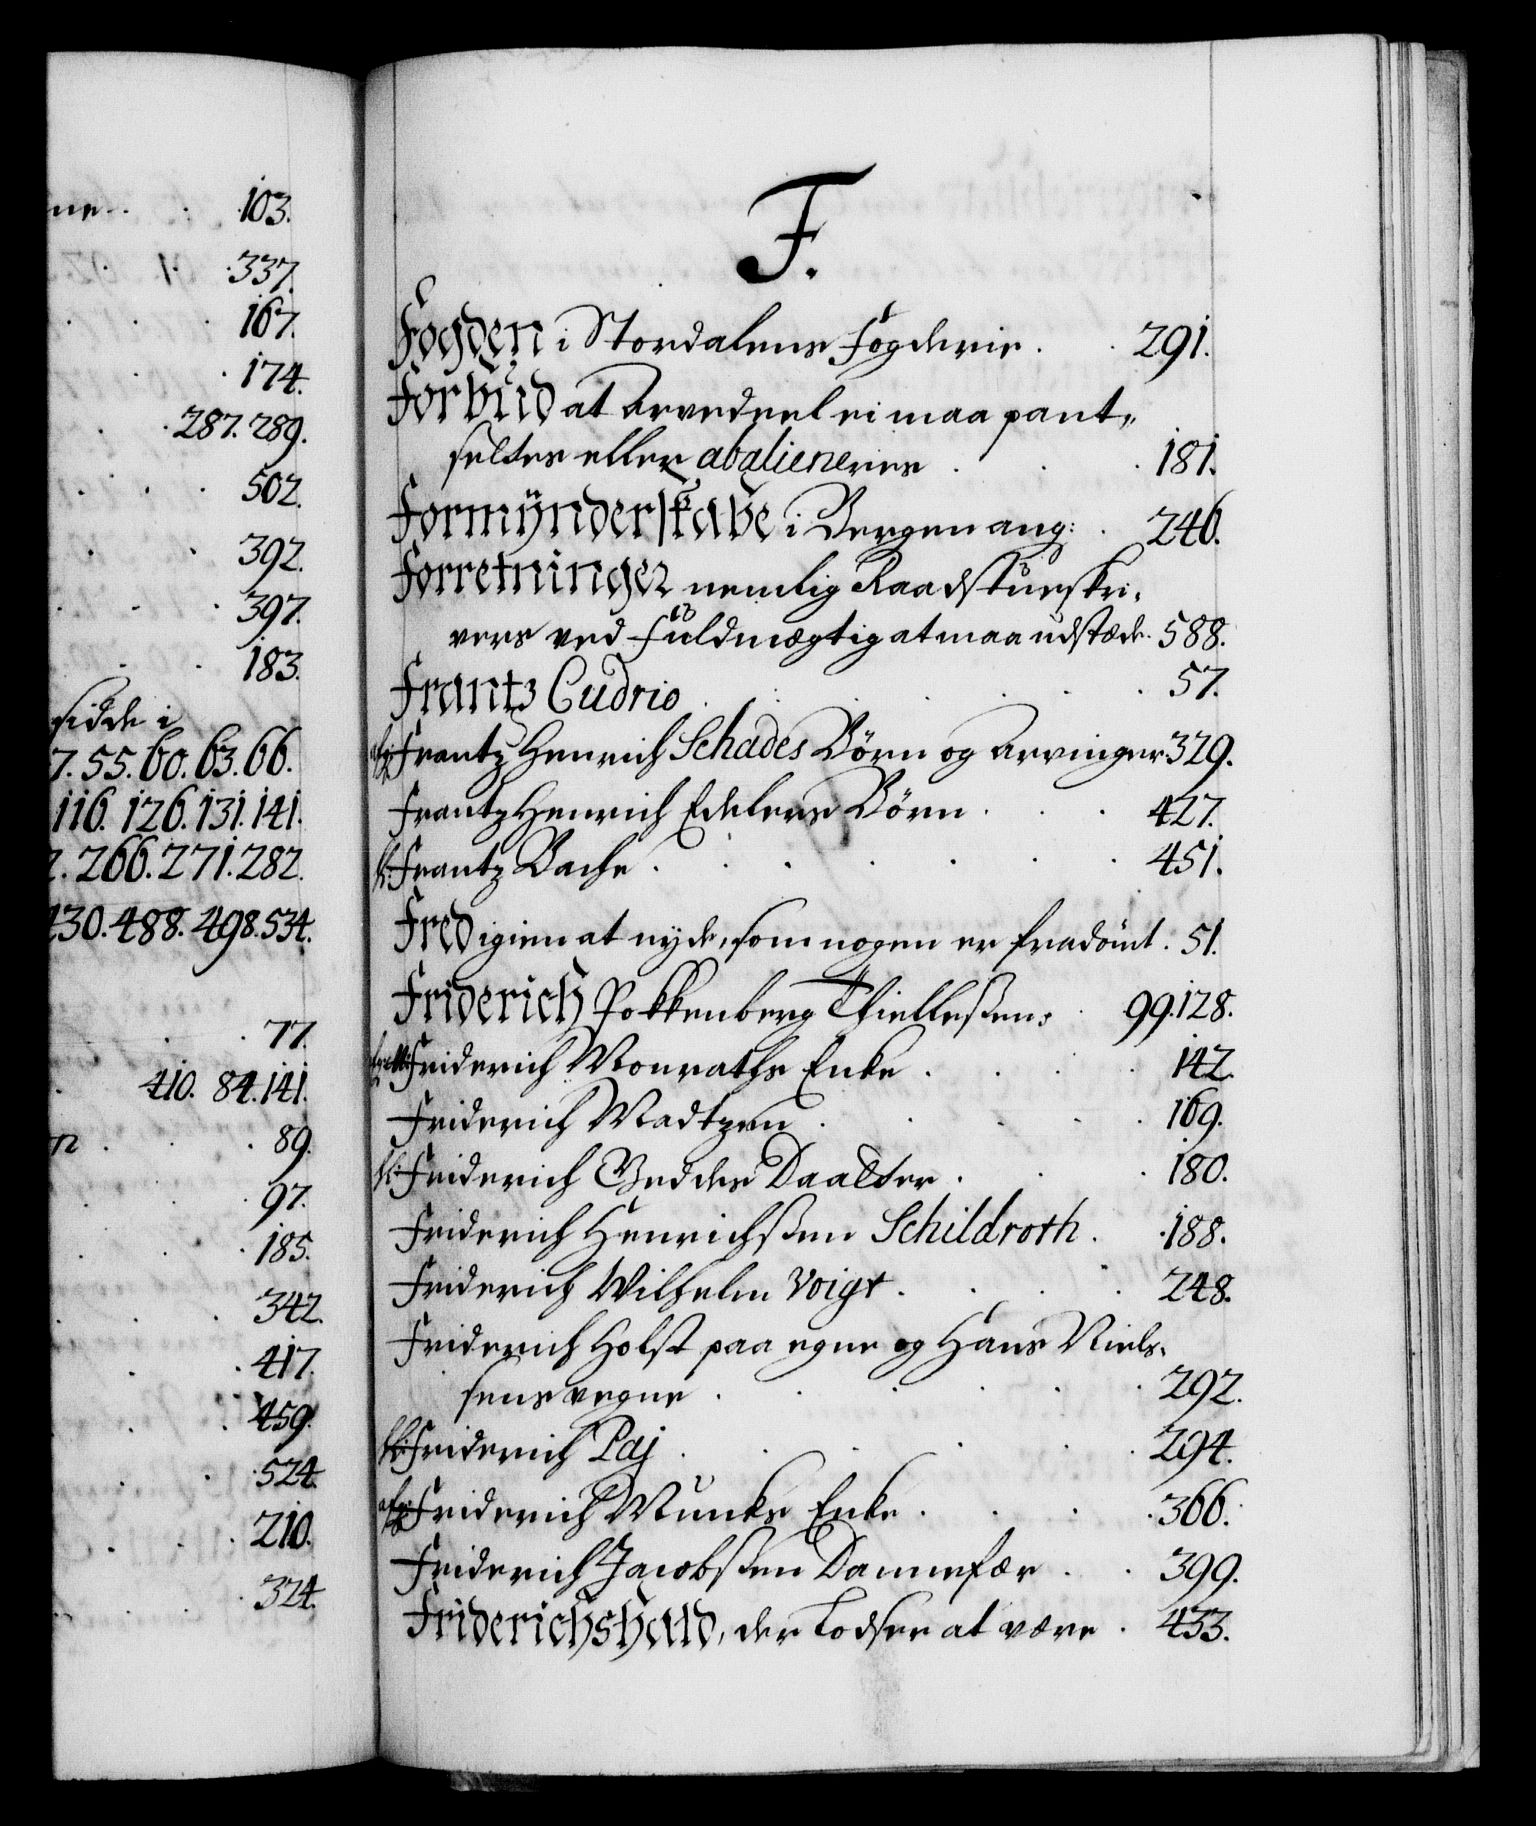 ne . . 103.
. 337.
. . . 167.
. . 174.
. . 287. 289.
. . . 502.
. . 392.
. . . 397.
. . 183.
sidde i
7. 55. 60. 63. 66.
116. 126. 131. 141.
2. 266. 271. 282.
430. 488. 498. 534.
. . 77.
. 410. 84. 141.
n . . . 89.
. . . 97.
. . . 185.
. . . 342.
. . 417.
. . 459.
. . . 524.
. . . 210.
. . . 324.
F.
Fogden i Stordalens Fogderie . . 291.
Forbud at Arvedeel ei maa pant„
settes eller abalieneres . . . 181.
Formÿnderskabe i Bergen ang: . 246.
Forretninger nemlig Raadstueskri„
vers ved Fuldmægtig at maa udstæde . 588.
Frantz Cudrio . . . . . . 57.
Frantz Henrich Schades Børn og Arvinger 329.
Frantz Henrich Edelers Børn . . . 427.
Frantz Bache . . . . . . 451.
Fred igien at nyde, som nogen er fradømt . 51.
Friderich Rokkenberg Thielleßen, . 99. 128.
Friderich Monraths Enke . . . . 142.
Friderich Madtzen . . . . . 169.
Friderich Geddes Daatter . . . 180.
Friderich Henrichßen Schildroth . . 188.
Friderich Wilhelm Voigt . . . . 248.
Friderich Holst paa egne og Hans Niels„
sens vegne . . . . . . 292.
Friderich Paj . . . . . . 294.
Friderich Munks Enke . . . . 366.
Friderich Jacobsßen Dannefær . . 399.
Friderichshald, der Lodser at være . 433.